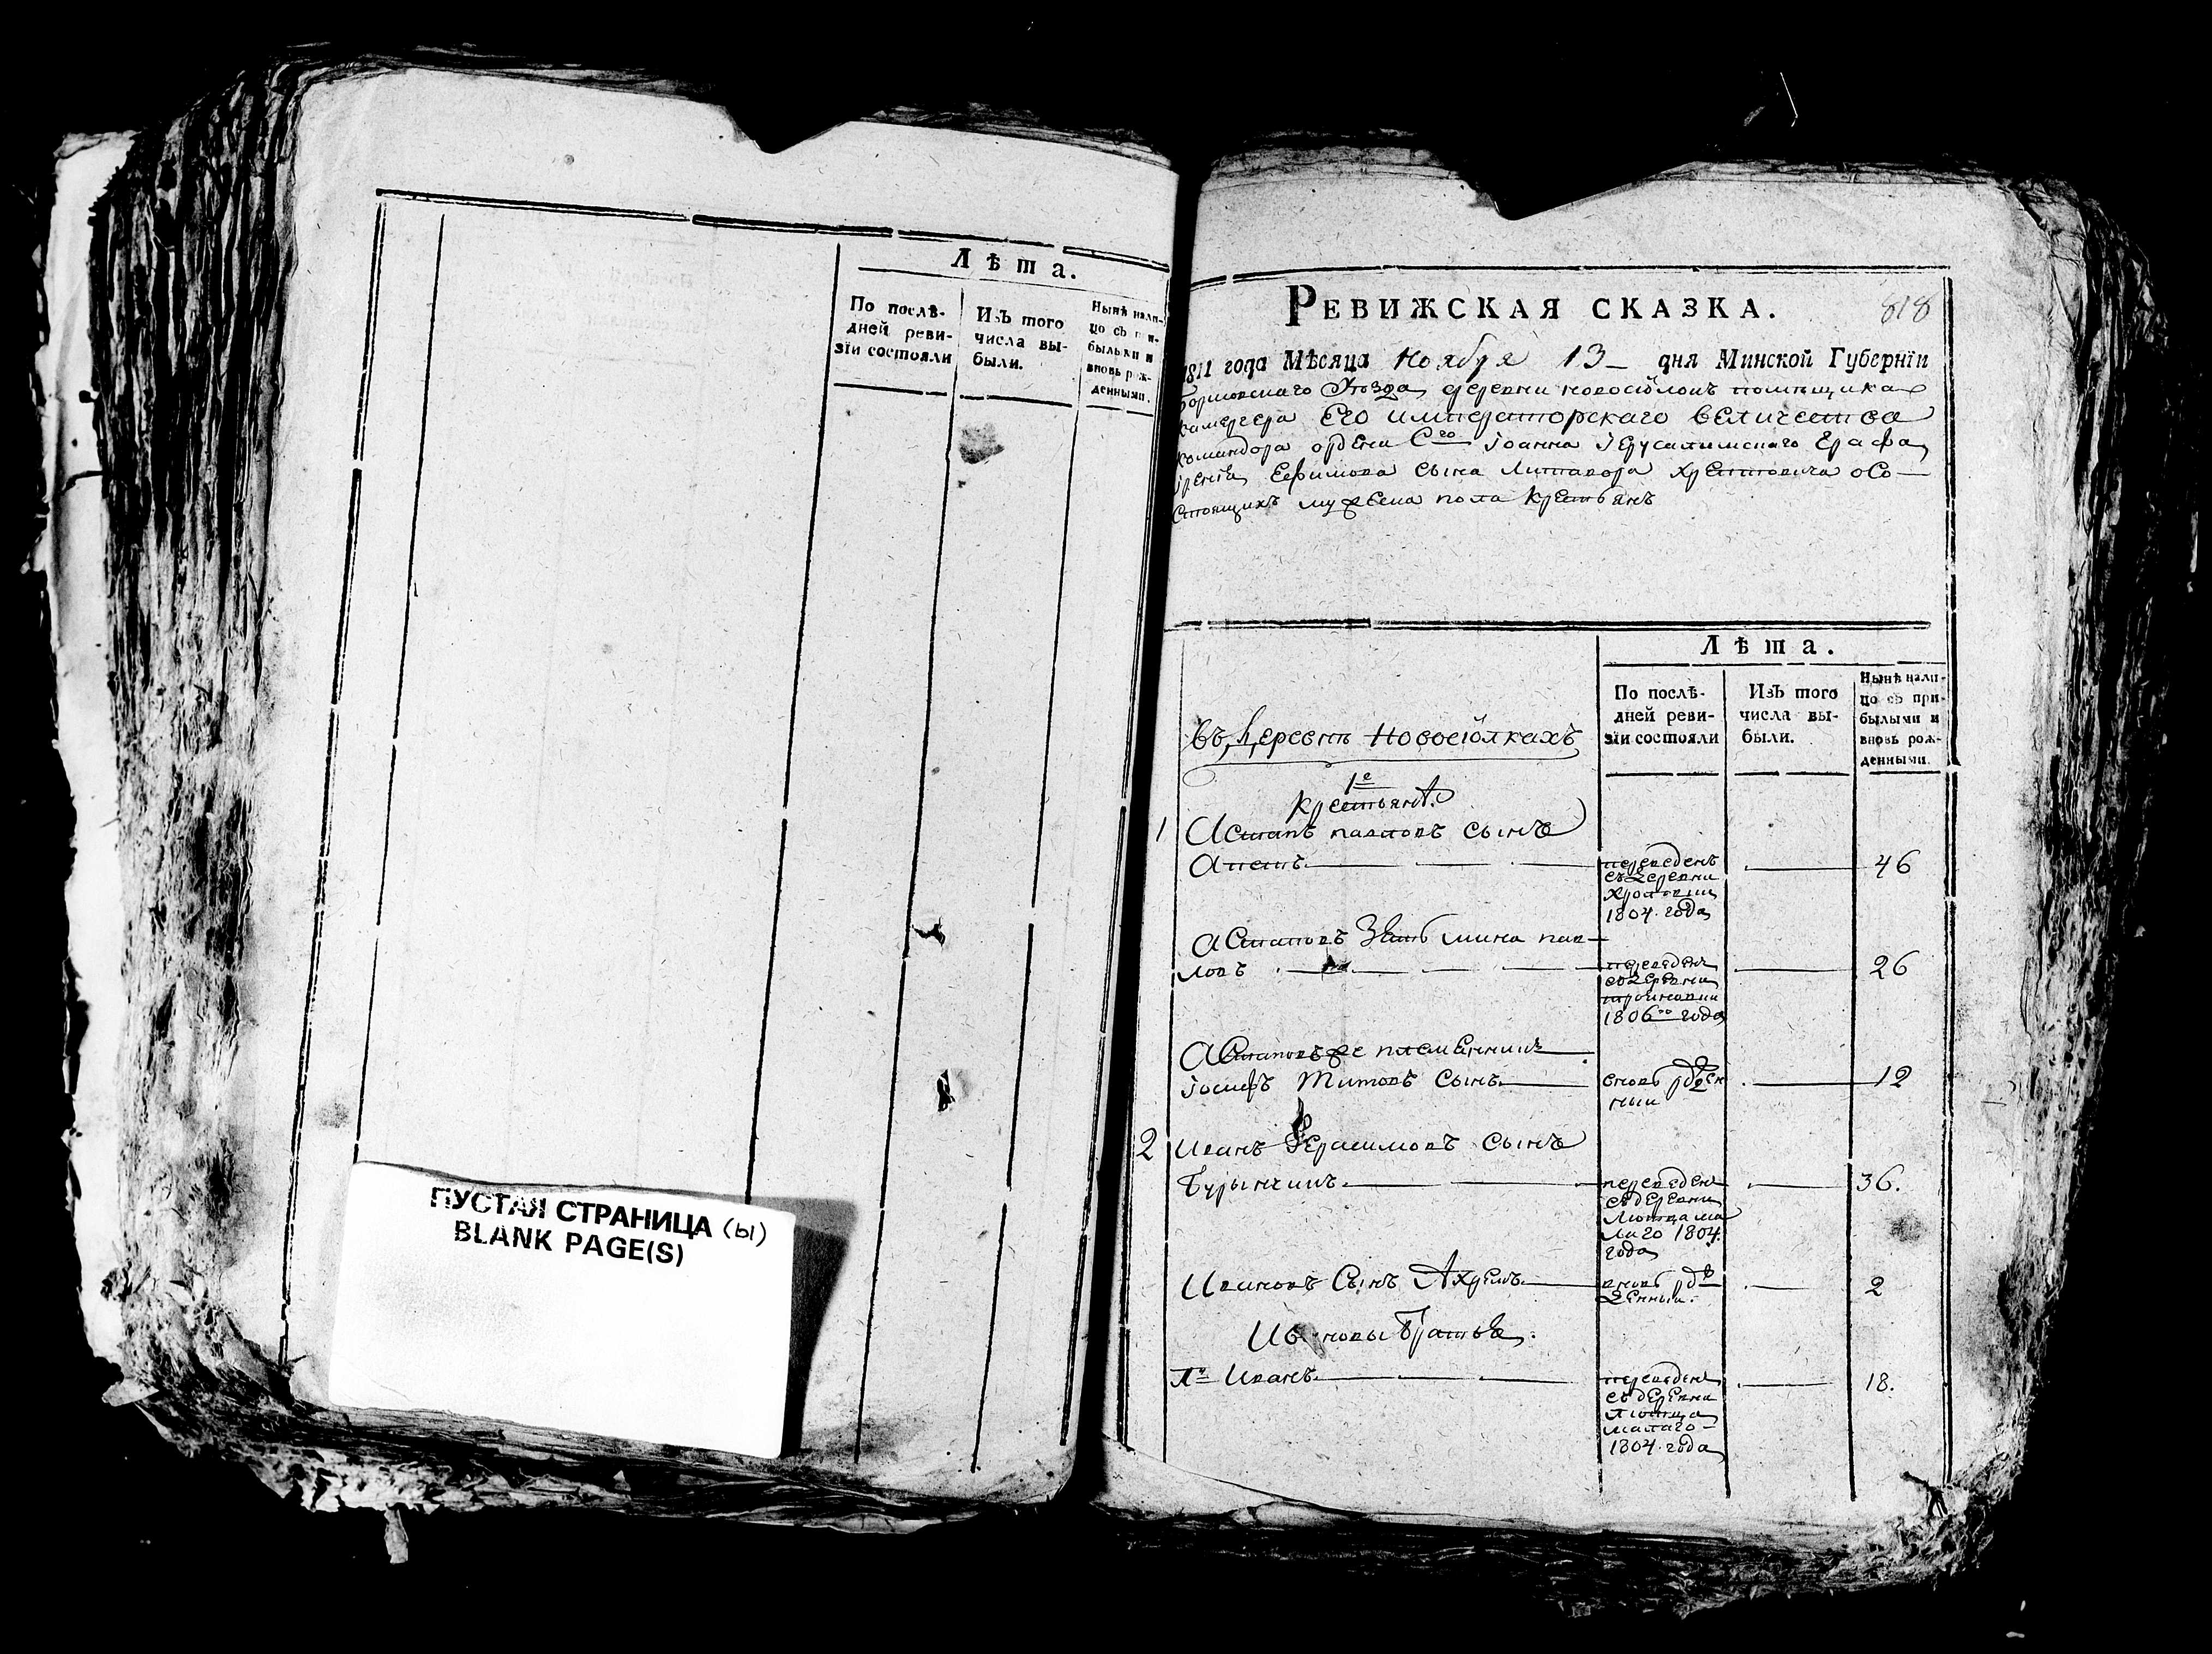 Лѣта.
По послѣ-
дней реви-
зїи состояли
ИзЪ того
числа вы-
были.
Нынѣ нали-
цо сЪ при-
былыми и
вновь рож-
денными.
ПУСТАЯ СТРАНИЦА (ы)
BLANK PAGE(S)
РЕВИЖСКАЯ СКАЗКА.
818
1811 года Мѣсяца Ноября 13 дня Минской Губернїи
Борисовскаго Уѣзда деревни новосіолокъ помѣщика
камергера Его императорскаго величества
командора ордена Сго Іоанна Іерусалимскаго Графа
Ефимова сына Литавора хрептовича осо-
стоящихъ мужеска пола крестьянъ
Лѣта.
По послѣ-
дней реви-
зїи состояли
ИзЪ того
числа вы-
были.
Нынѣ нали-
цо сЪ при-
былыми и
вновь рож-
денными.
въ Деревнѣ Новосіолкахъ
1е
крестьянѣ
1 Астапъ павловъ сынъ
переведенъ 46
съ деревни
1804 года
Астаповъ Зять мина пав-
ловъ переведенъ 26
съ деревни
1806го года
Астаповъ же племенникъ
Іосифъ Титовъ сынъ вновь рожден 12
ный
2 Иванъ Герасимовъ сынъ
переведенъ 36.
съ деревни
ма
лаго 1804
года
Ивановъ Сынъ Ахремъ вновь рож 2
денный.
Ивановы Братья.
1й Иванъ переведенъ 18.
съ деревни
малаго
1804 года